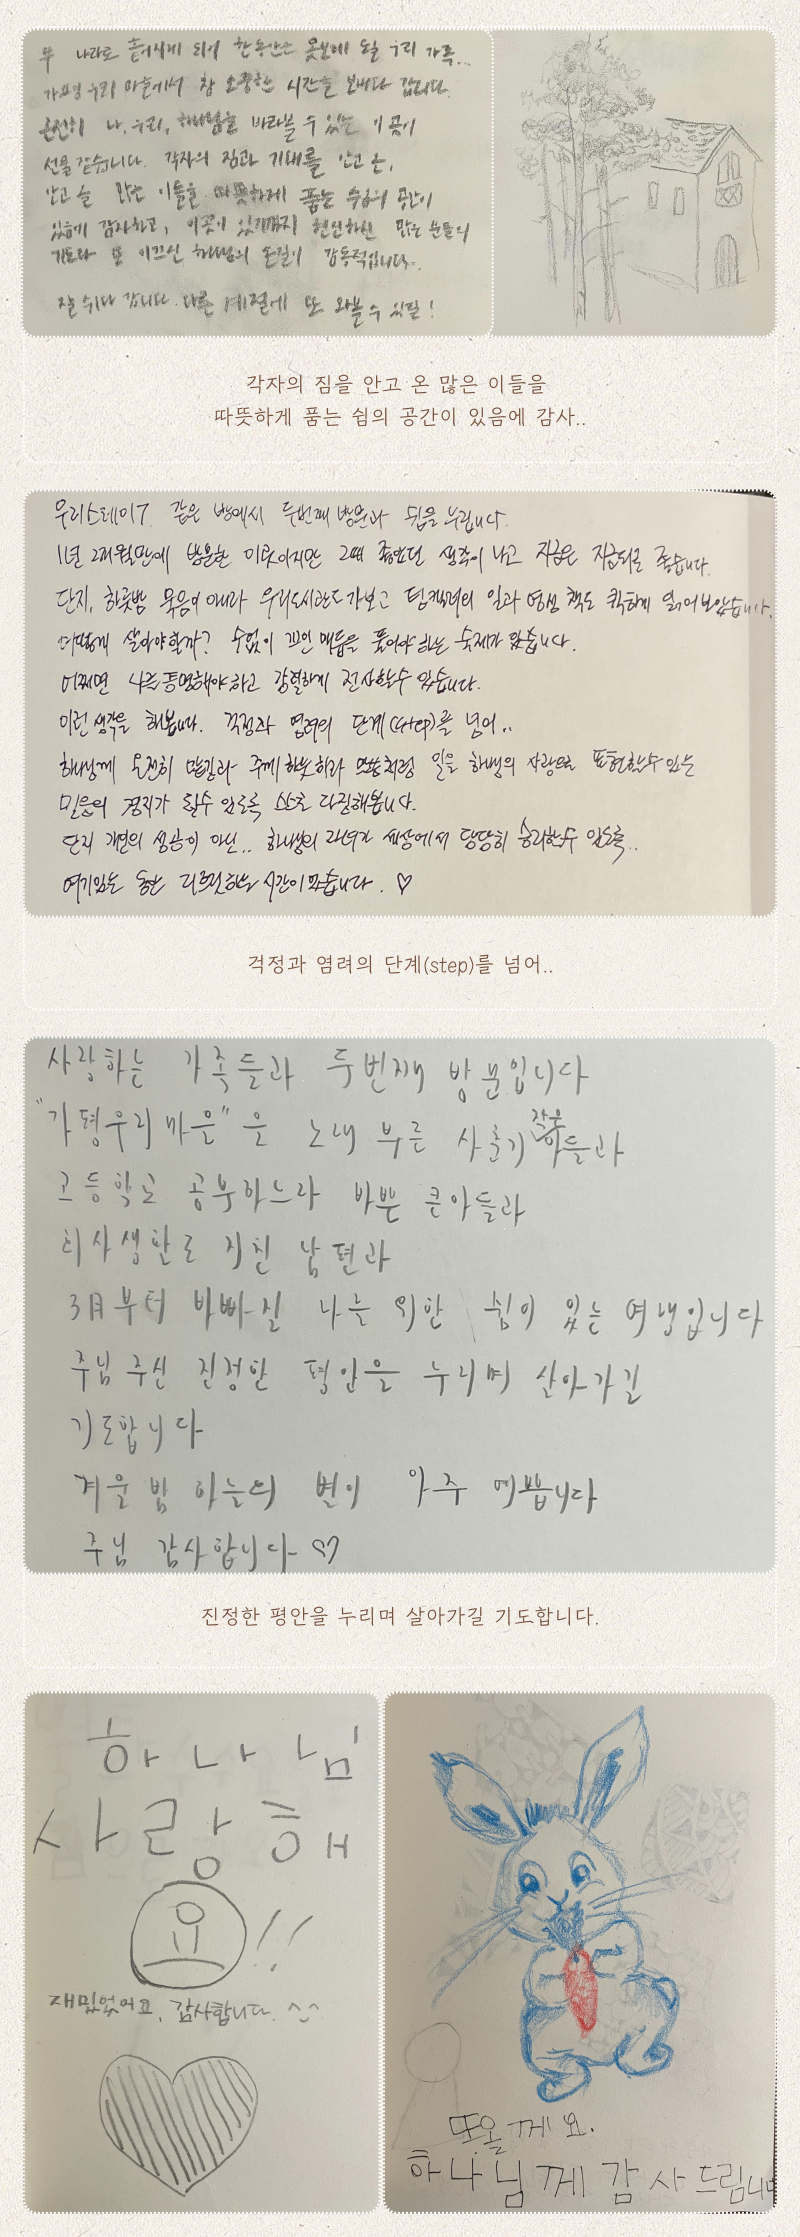 두 나라로 흩어지게 되어 한동안은 못보게 될 우리 가족...
가평 우리 마을에서 참 소중한 시간을 보내다 갑니다.
온전히 나, 우리, 하나님을 바라볼 수 있는 이 곳이
선물 같습니다. 각자의 짐과 기대를 안고 온,
안고 올 많은 이들을 따뜻하게 품는 쉼의 공간이
있음에 감사하고, 이곳이 있기까지 헌신하신 많은 분들의
기도와 또 이끄신 하나님의 손길이 감동적입니다..
잘 쉬다 갑니다. 다른 계절에 또 와볼 수 있길!
각자의 짐을 안고 온 많은 이들을
따뜻하게 품는 쉼의 공간이 있음에 감사..
우리스테이7. 같은 방에서 두번째 방문과 쉼을 누립니다.
1년 2개월만에 방문한 이곳이지만 그때 좋았던 생각이 나고 지금은 지금대로 좋습니다.
단지, 하룻밤 묵음이 아니라 우리도서관도 가보고 팀켈러의 일과 영성 책도 퀵하게 읽어보았습니다.
어떻게 살아야할까? 수없이 꼬인 매듭을 풀어야하는 숙제가 많습니다.
어쩌면 나를 증명해야하고 강렬하게 전사할수 있습니다.
이런 생각을 해봅니다. 걱정과 염려의 단계(step)를 넘어..
하나님께 온전히 맡길라 주께 하듯하라 말씀처럼 일을 하나님의 사랑으로 표현할수 있는
믿음의 경지가 될수 있도록 스스로 다짐해봅니다.
단지 개인의 성공이 아닌.. 하나님의 자녀가 세상에서 당당히 승리할수 있도록..
여기있는 동안 리프레싱하는 시간이 많습니다. ♡
걱정과 염려의 단계(step)를 넘어..
사랑하는 가족들과 두번째 방문입니다
"가평우리마을"을 노래 부른 사춘기 작은 아들과
고등학교 공부하느라 바쁜 큰아들과
회사생활로 지친 남편과
3月부터 바빠질 나를 위한 쉼이 있는 여행입니다
주님 주신 진정한 평안을 누리며 살아가길
기도합니다
겨울 밤 하늘의 별이 아주 예쁩니다
주님 감사합니다 ♡
진정한 평안을 누리며 살아가길 기도합니다.
하나님
사랑해
요!!
재밌었어요, 감사합니다. ^^
또올께요.
하나님께 감사드립니다